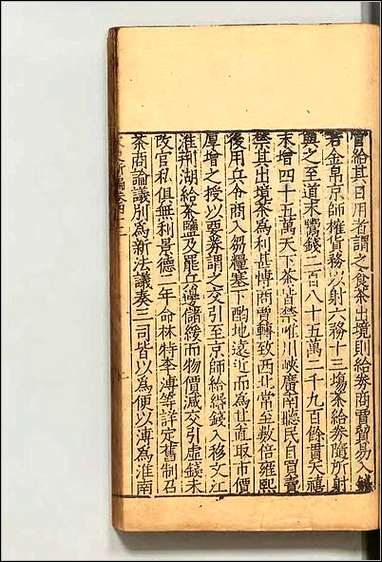 官給其日用者謂之食茶出境則給券商賈貿易入錢
若金帛京師榷貨務以射六務十三場茶給券隨所射
與之至道末鬻錢二百八十五萬二千九百餘貫天禧
末增四十五萬天下茶皆禁唯川峽廣南聽民自買賣
禁其出境茶為利甚愽商賈轉致西北常至數倍雍熙
後用兵令商入芻糧塞下酌地遠近而為其直取市價
厚增之授以要券謂之交引至京師給緡錢入移文江
淮荆湖給茶鹽及罷兵邊儲緩而物價減交引虛錢未
改官私俱無利景德二年命林特李溥等詳定舊制召
茶商論議別為新法議奏三司皆以為便以溥為淮南